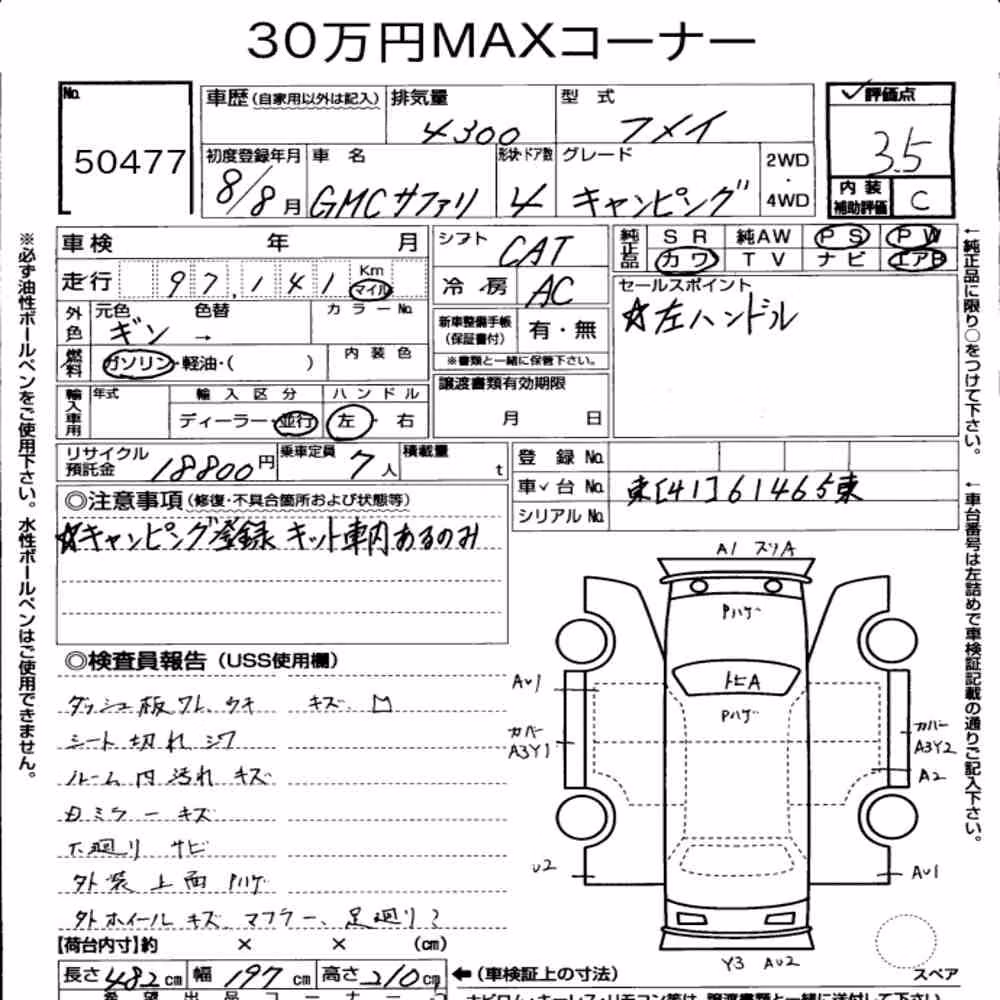 30万円MAXコーナー
No. 50477
車歴(自家用以外は記入) 排気量 4300 型式 フメイ
初度登録年月 8/8月 車名 GMCサファリ 形状・ドア数 4 グレード キャンピング 2WD・4WD
✓評価点 3.5
内装補助評価 C
車検 年 月
走行 97,141 Km マイル
シフト CAT
冷房 AC
純正品 SR 純AW PS PW
カワ TV ナビ エアB
外色 元色 ギン → 色替 カラーNo.
燃料 ガソリン・軽油・( ) 内装色
新車整備手帳(保証書付) 有・無
※書類と一緒に保管下さい。
セールスポイント
☆左ハンドル
輸入車用 年式 輸入区分 ハンドル
ディーラー・並行 左・右
譲渡書類有効期限
月 日
リサイクル預託金 18800円 乗車定員 7人 積載量 t
登録No.
車✓台No. 東[41]61465東
シリアルNo.
◎注意事項(修復・不具合箇所および状態等)
☆キャンピング登録 キット車内あるのみ
◎検査員報告(USS使用欄)
ダッシュ板ワレ、ウキ キズ、凹
シート切れ シワ
ルーム内汚れ キズ
ミラーキズ
下廻りサビ
外装上面Pハゲ
外ホイールキズ マフラー、足廻り?
A1 スリA
Pハゲ
トビA
Pハゲ
AU1
カバー A3Y1
カバー A3Y2
A2
U2
AU1
Y3 AU2
スペア
【荷台内寸】約 × × (cm)
長さ482cm 幅197cm 高さ210cm ←(車検証上の寸法)
希望出品コーナー
ナビロム・キーレス・リモコン等は、譲渡書類と一緒に保管下さい。
※必ず油性ボールペンをご使用下さい。水性ボールペンはご使用できません。
←純正品に限り○をつけて下さい。
←車台番号は左詰めで車検証記載の通りご記入下さい。